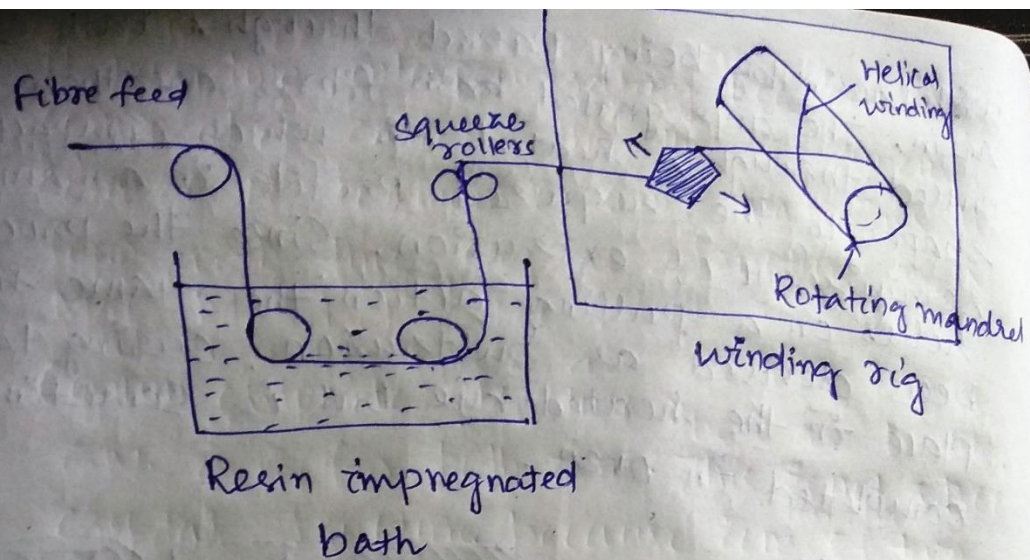 Fibre feed
squeeze
rollers
Helical
winding
Rotating mandrel
winding rig
Resin impregnated
bath